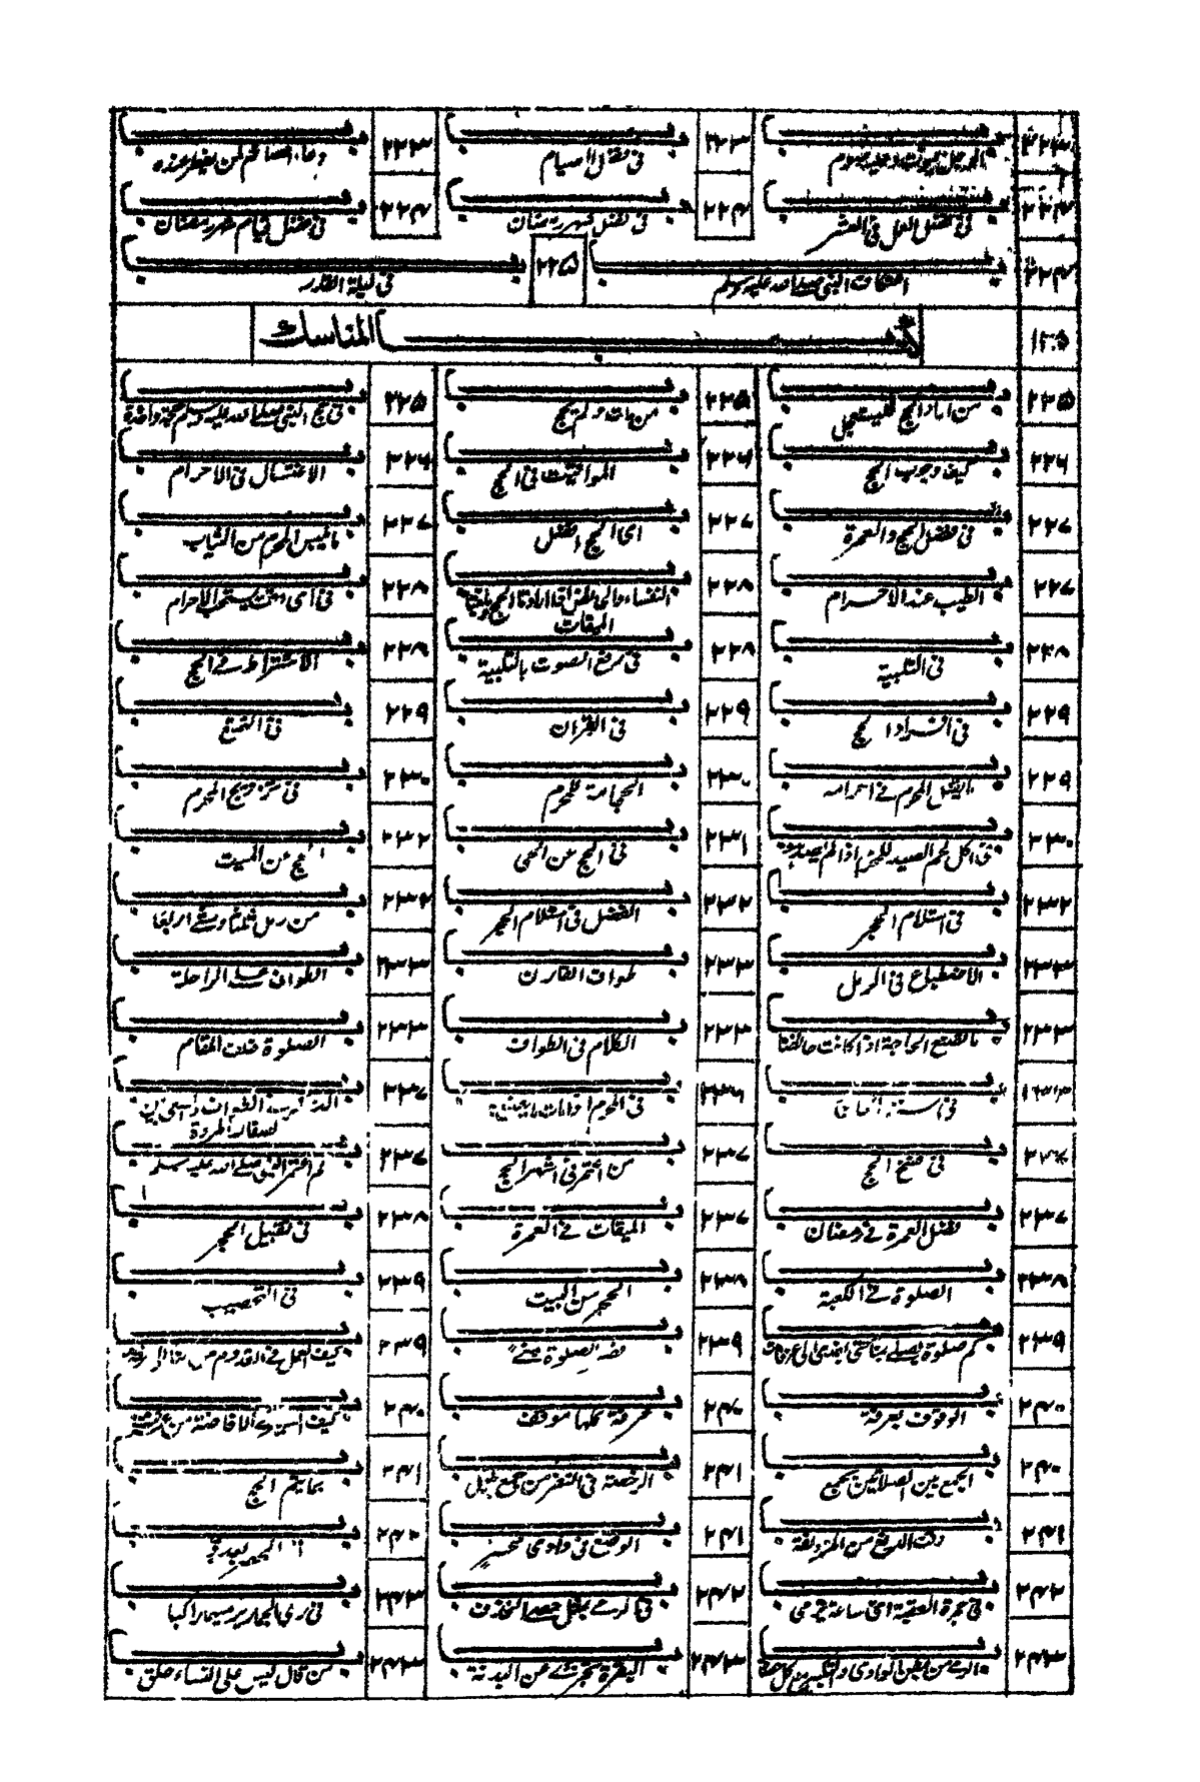 ٢٢٣ باب
٢٢٣ باب في فضل الصيام
٢٢٣ باب دعاء الصائم لمن يفطر عنده
٢٢٤ باب في فضل العمل في العشر
٢٢٤ باب في فضل شهر رمضان
٢٢٤ باب في فضل قيام شهر رمضان
٢٢٤ باب اعتكاف النبي صلى الله عليه وسلم
٢٢٥ باب في ليلة القدر
كتاب المناسك
٢٢٥ باب من اراد الحج فليستعجل
٢٢٥ باب من مات ولم يحج
٢٢٥ باب في حج النبي صلى الله عليه وسلم حجة واحدة
٢٢٦ باب كيف وجوب الحج
٢٢٦ باب المواقيت في الحج
٢٢٦ باب الاغتسال في الاحرام
٢٢٧ باب في فضل الحج والعمرة
٢٢٧ باب اى الحج افضل
٢٢٧ باب مايلبس المحرم من الثياب
٢٢٧ باب الطيب عند الاحرام
٢٢٨ باب النفساء والحائض اذا ارادتا الحج وبلغتا الميقات
٢٢٨ باب في اى وقت يستحب الاحرام
٢٢٨ باب في التلبية
٢٢٨ باب في رفع الصوت بالتلبية
٢٢٨ باب الاشتراط في الحج
٢٢٩ باب في افراد الحج
٢٢٩ باب في القران
٢٢٩ باب في التمتع
٢٢٩ باب مايقتل المحرم في احرامه
٢٣٠ باب الحجامة للمحرم
٢٣٠ باب في تزويج المحرم
٢٣٠ باب في اكل لحم الصيد للمحرم اذا لم يصد هو
٢٣١ باب في الحج عن الحى
٢٣٢ باب الحج عن الميت
٢٣٢ باب في استلام الحجر
٢٣٢ باب الفضل في استلام الحجر
٢٣٢ باب من رمل ثلثا ومشى اربعا
٢٣٣ باب الاضطباع في الرمل
٢٣٣ باب طواف القارن
٢٣٣ باب الطواف على الراحلة
٢٣٣ باب ماتصنع الحاجة اذا كانت حائضا
٢٣٣ باب الكلام في الطواف
٢٣٣ باب الصلوة خلف المقام
باب في سنة
٢٣٦ باب في المحرم اذا مات
٢٣٧ باب
باب في فسخ الحج
٢٣٧ باب من اعتمر في اشهر الحج
٢٣٧ باب كم اعتمر النبي صلى الله عليه وسلم
٢٣٧ باب فضل العمرة في رمضان
٢٣٧ باب الميقات في العمرة
٢٣٨ باب في تقبيل الحجر
٢٣٨ باب الصلوة في الكعبة
٢٣٨ باب الحجر من البيت
٢٣٩ باب في التحصيب
٢٣٩ باب كم صلوة يصلى بمنى حتى يغدى الى عرفات
٢٣٩ باب قصر الصلوة بمنى
٢٣٩ باب كيف العمل في القدوم من منى الى عرفة
٢٤٠ باب الوقوف بعرفة
٢٤٠ باب عرفة كلها موقف
٢٤٠ باب كيف السير في الافاضة من عرفة
٢٤٠ باب الجمع بين الصلاتين بجمع
٢٤١ باب الرخصة في النفر من جمع بليل
٢٤١ باب بما يتم الحج
٢٤١ باب وقت الدفع من المزدلفة
٢٤١ باب الوضع في وادى محسر
٢٤٢ باب
٢٤٢ باب في جمرة العقبة اى ساعة ترمى
٢٤٢ باب في الرمى بمثل حصى الخذف
٢٤٣ باب في رمى الجمار يرميها راكبا
٢٤٣ باب الرمى من بطن الوادى والتكبير مع كل حصاة
٢٤٣ باب البقرة تجزئ عن البدنة
٢٤٣ باب من قال ليس على النساء حلق